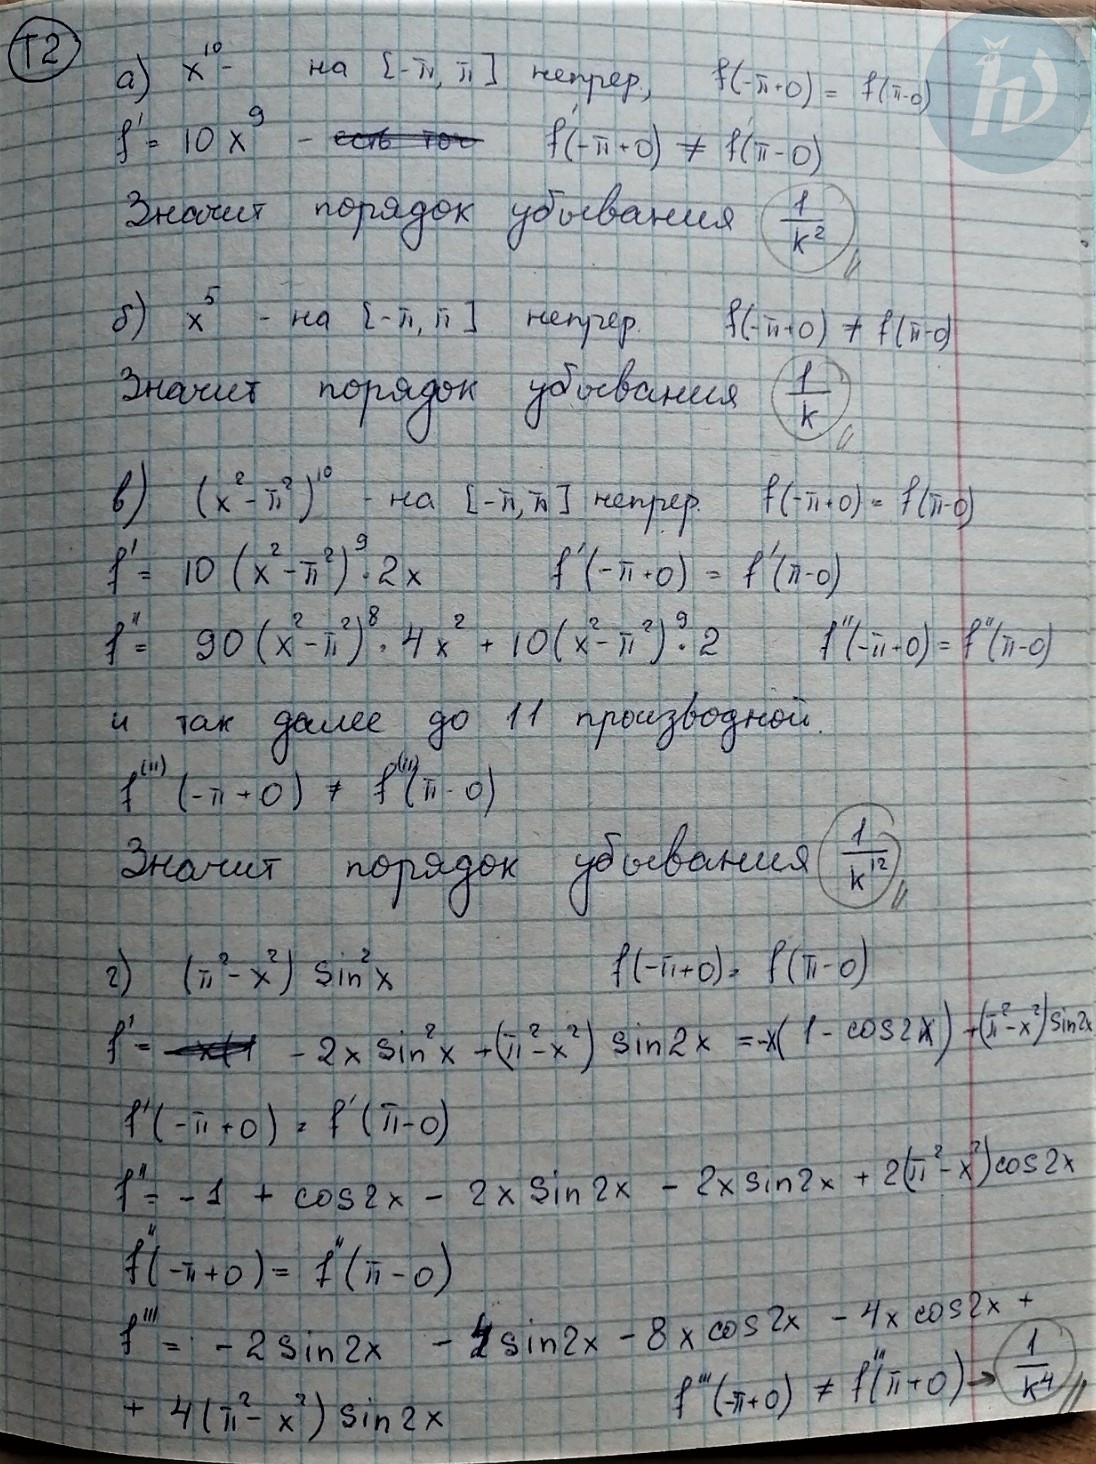 Т2
а) x¹⁰ - на [-π, π] непрер., f(-π+0) = f(π-0)
f' = 10x⁹ - f'(-π+0) ≠ f'(π-0)
Значит порядок убывания 1/k²
б) x⁵ - на [-π, π] непрер. f(-π+0) ≠ f(π-0)
Значит порядок убывания 1/k
в) (x²-π²)¹⁰ - на [-π, π] непрер. f(-π+0) = f(π-0)
f' = 10(x²-π²)⁹·2x f'(-π+0) = f'(π-0)
f'' = 90(x²-π²)⁸·4x² + 10(x²-π²)⁹·2 f''(-π+0) = f''(π-0)
и так далее до 11 производной.
f⁽¹¹⁾(-π+0) ≠ f⁽¹¹⁾(π-0)
Значит порядок убывания 1/k¹²
г) (π²-x²) sin²x f(-π+0) = f(π-0)
f' = -2x sin²x + (π²-x²) sin2x = -x(1-cos2x) + (π²-x²) sin2x
f'(-π+0) = f'(π-0)
f'' = -1 + cos2x - 2x sin2x - 2x sin2x + 2(π²-x²) cos2x
f''(-π+0) = f''(π-0)
f''' = -2 sin2x - 4 sin2x - 8x cos2x - 4x cos2x +
+ 4(π²-x²) sin2x f'''(-π+0) ≠ f'''(π+0) → 1/k⁴